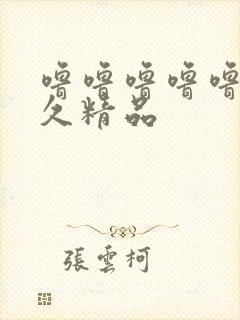 噜噜噜噜噜
久精品
張雲柯